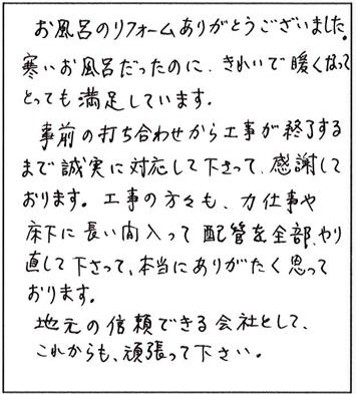 お風呂のリフォームありがとうございました。
寒いお風呂だったのに、きれいで暖くなって
とっても満足しています。
事前の打ち合わせから工事が終了する
まで誠実に対応して下さって、感謝して
おります。工事の方々も、力仕事や
床下に長い間入って配管を全部、やり
直して下さって、本当にありがたく思って
おります。
地元の信頼できる会社として、
これからも、頑張って下さい。